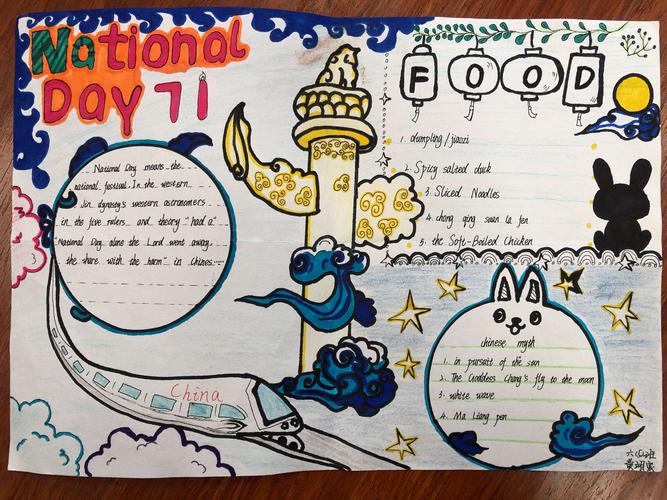 National
Day 71
National Day means the
national festival. In the western
Jin dynasty's western astronomers
in the five rulers and theory "had a
National Day alone the Lord went away,
the share with the harm" in Chines
China
FOOD
1. dumpling/jiaozi
2. Spicy salted duck
3. Sliced Noodles
4. chong qing suan la fen
5. the Soft-Boiled Chicken
chinese myth
1. in pursuit of the sun
2. The Goddess Chang's fly to the moon
3. white wave
4. Ma Liang pen